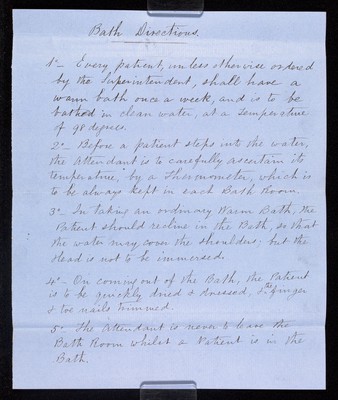 Bath Directions.
1º– Every patient, unless otherwise ordered
by the Superintendent, shall have a
warm bath once a week, and is to be
bathed in clean water, at a temperature
of 98 degrees.
2º– Before a patient steps into the water,
the Attendant is to carefully ascertain its
temperature, by a Thermometer, which is
to be always kept in each Bath Room.
3º– In taking an ordinary Warm Bath, the
Patient should recline in the Bath, so that
the water may cover the shoulders; but the
Head is not to be immersed.
4º– On coming out of the Bath, the Patient
is to be quickly dried & dressed, & the finger
& toe nails trimmed.
5º– The Attendant is never to leave the
Bath Room whilst a Patient is in the
Bath.